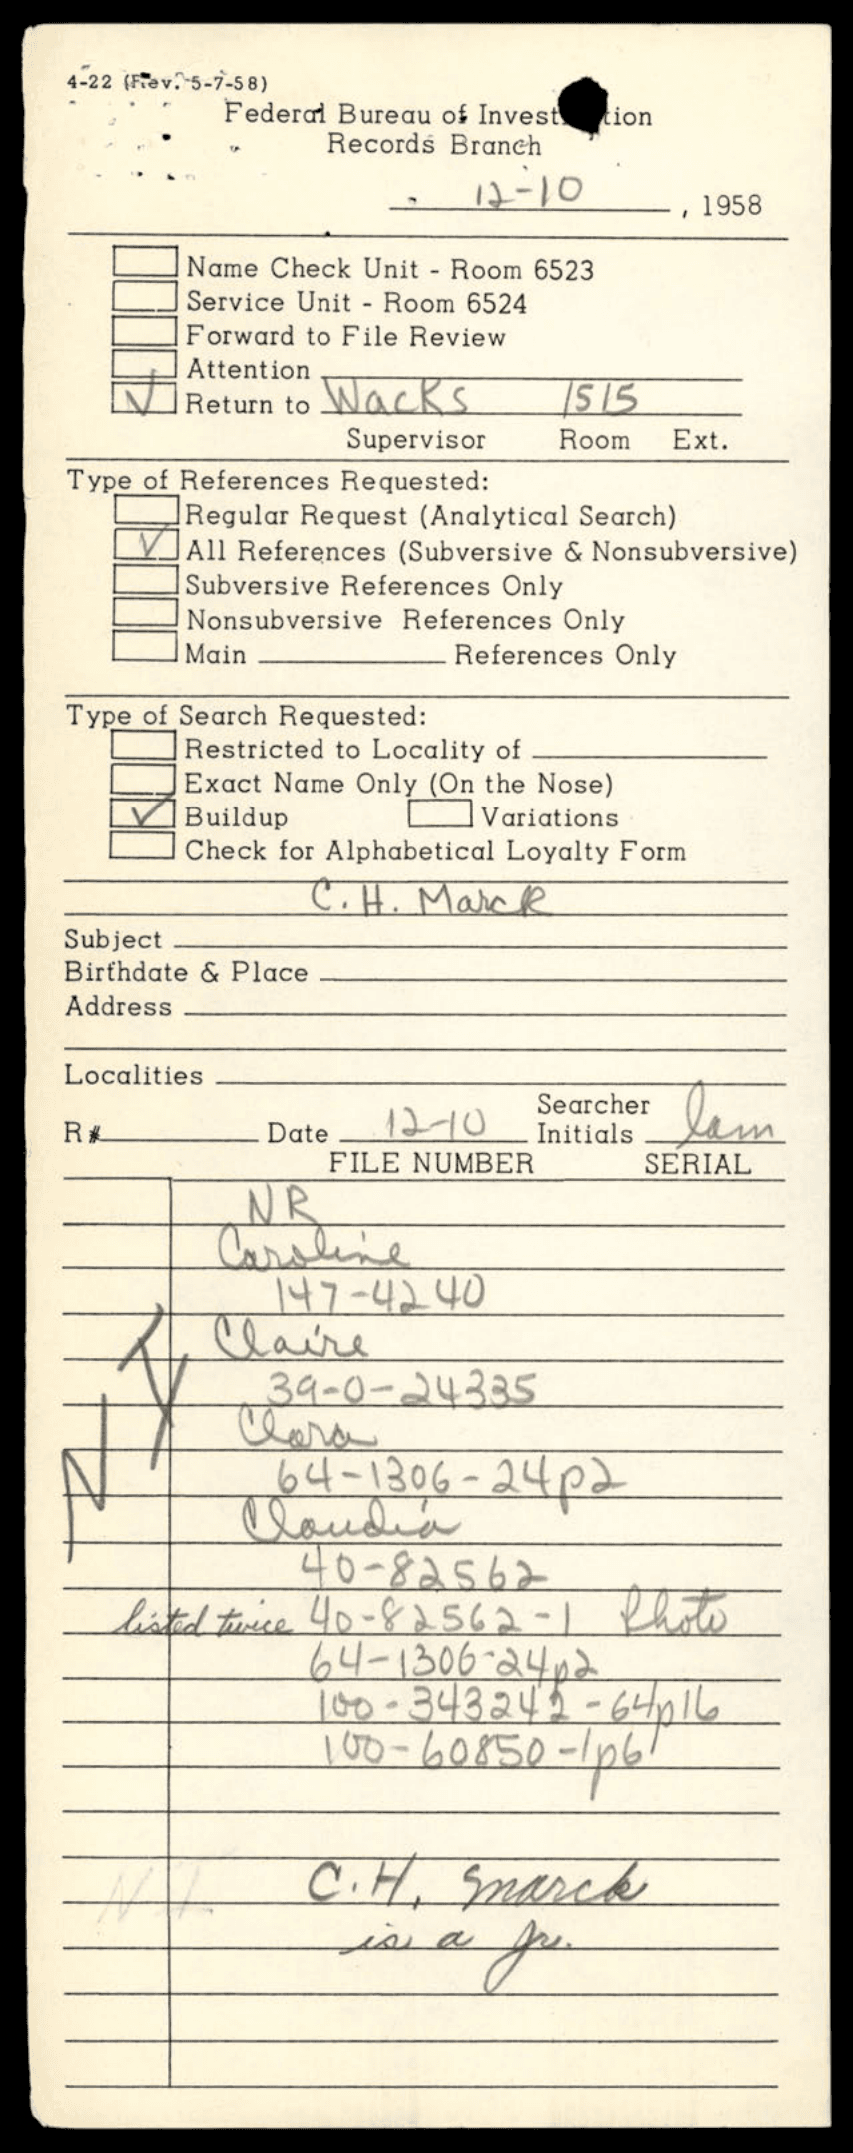 4-22 (Rev. 5-7-58)
Federal Bureau of Invest tion
Records Branch
12-10, 1958
Name Check Unit - Room 6523
Service Unit - Room 6524
Forward to File Review
Attention
Return to Wacks 1515
Supervisor Room Ext.
Type of References Requested:
Regular Request (Analytical Search)
All References (Subversive & Nonsubversive)
Subversive References Only
Nonsubversive References Only
Main References Only
Type of Search Requested:
Restricted to Locality of
Exact Name Only (On the Nose)
Buildup Variations
Check for Alphabetical Loyalty Form
C. H. Marck
Subject
Birthdate & Place
Address
Localities
R# Date 12-10 Searcher Initials lam
FILE NUMBER SERIAL
NR
Caroline
147-4240
Claire
39-0-24335
Clara
64-1306-24p2
Claudia
40-82562
listed twice 40-82562-1 Photo
64-1306-24p2
100-343242-64p16
100-60850-1p6
C.H. Marck
is a Jr.